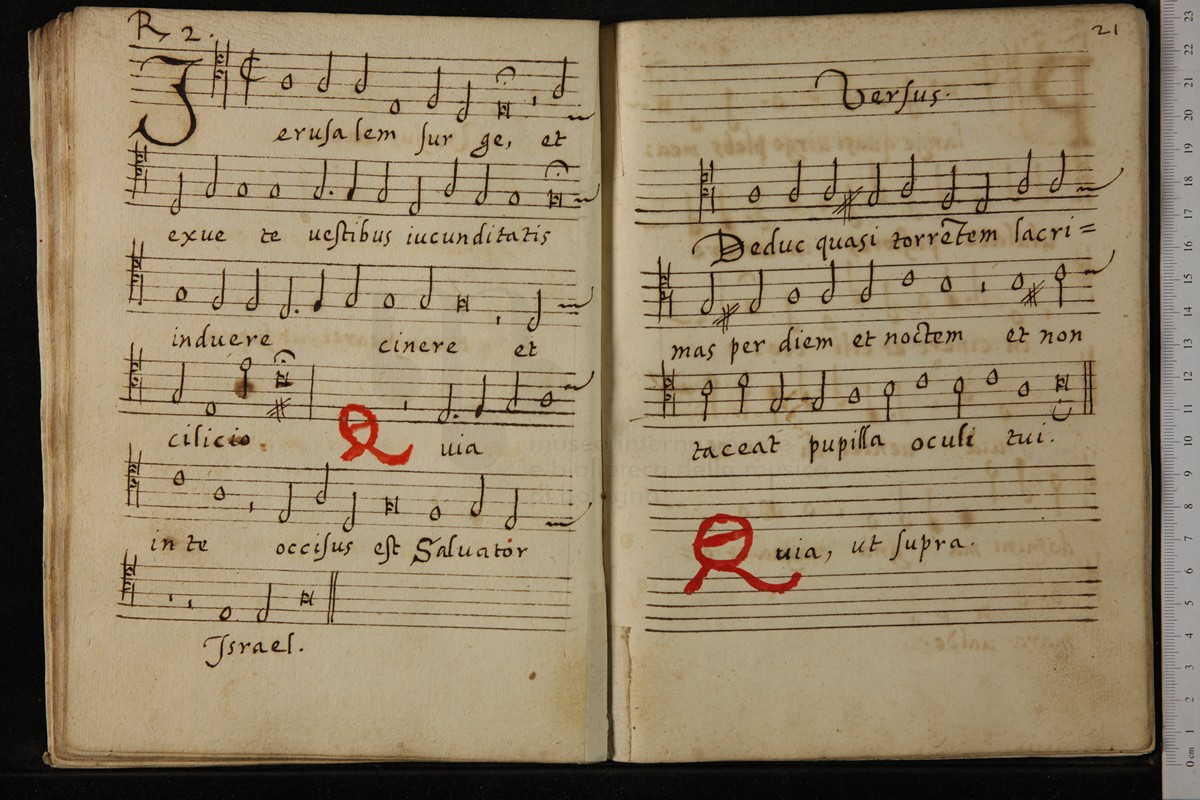 R. 2.
Jerusalem surge, et
exue te vestibus iucunditatis
induere cinere et
cilicio. Quia
in te occisus est Salvator
Israel.
21
Versus.
Deduc quasi torrẽtem lacri=
mas per diem et noctem et non
taceat pupilla oculi tui.
Quia, ut supra.
museo internazionale
e biblioteca della musica
di bologna